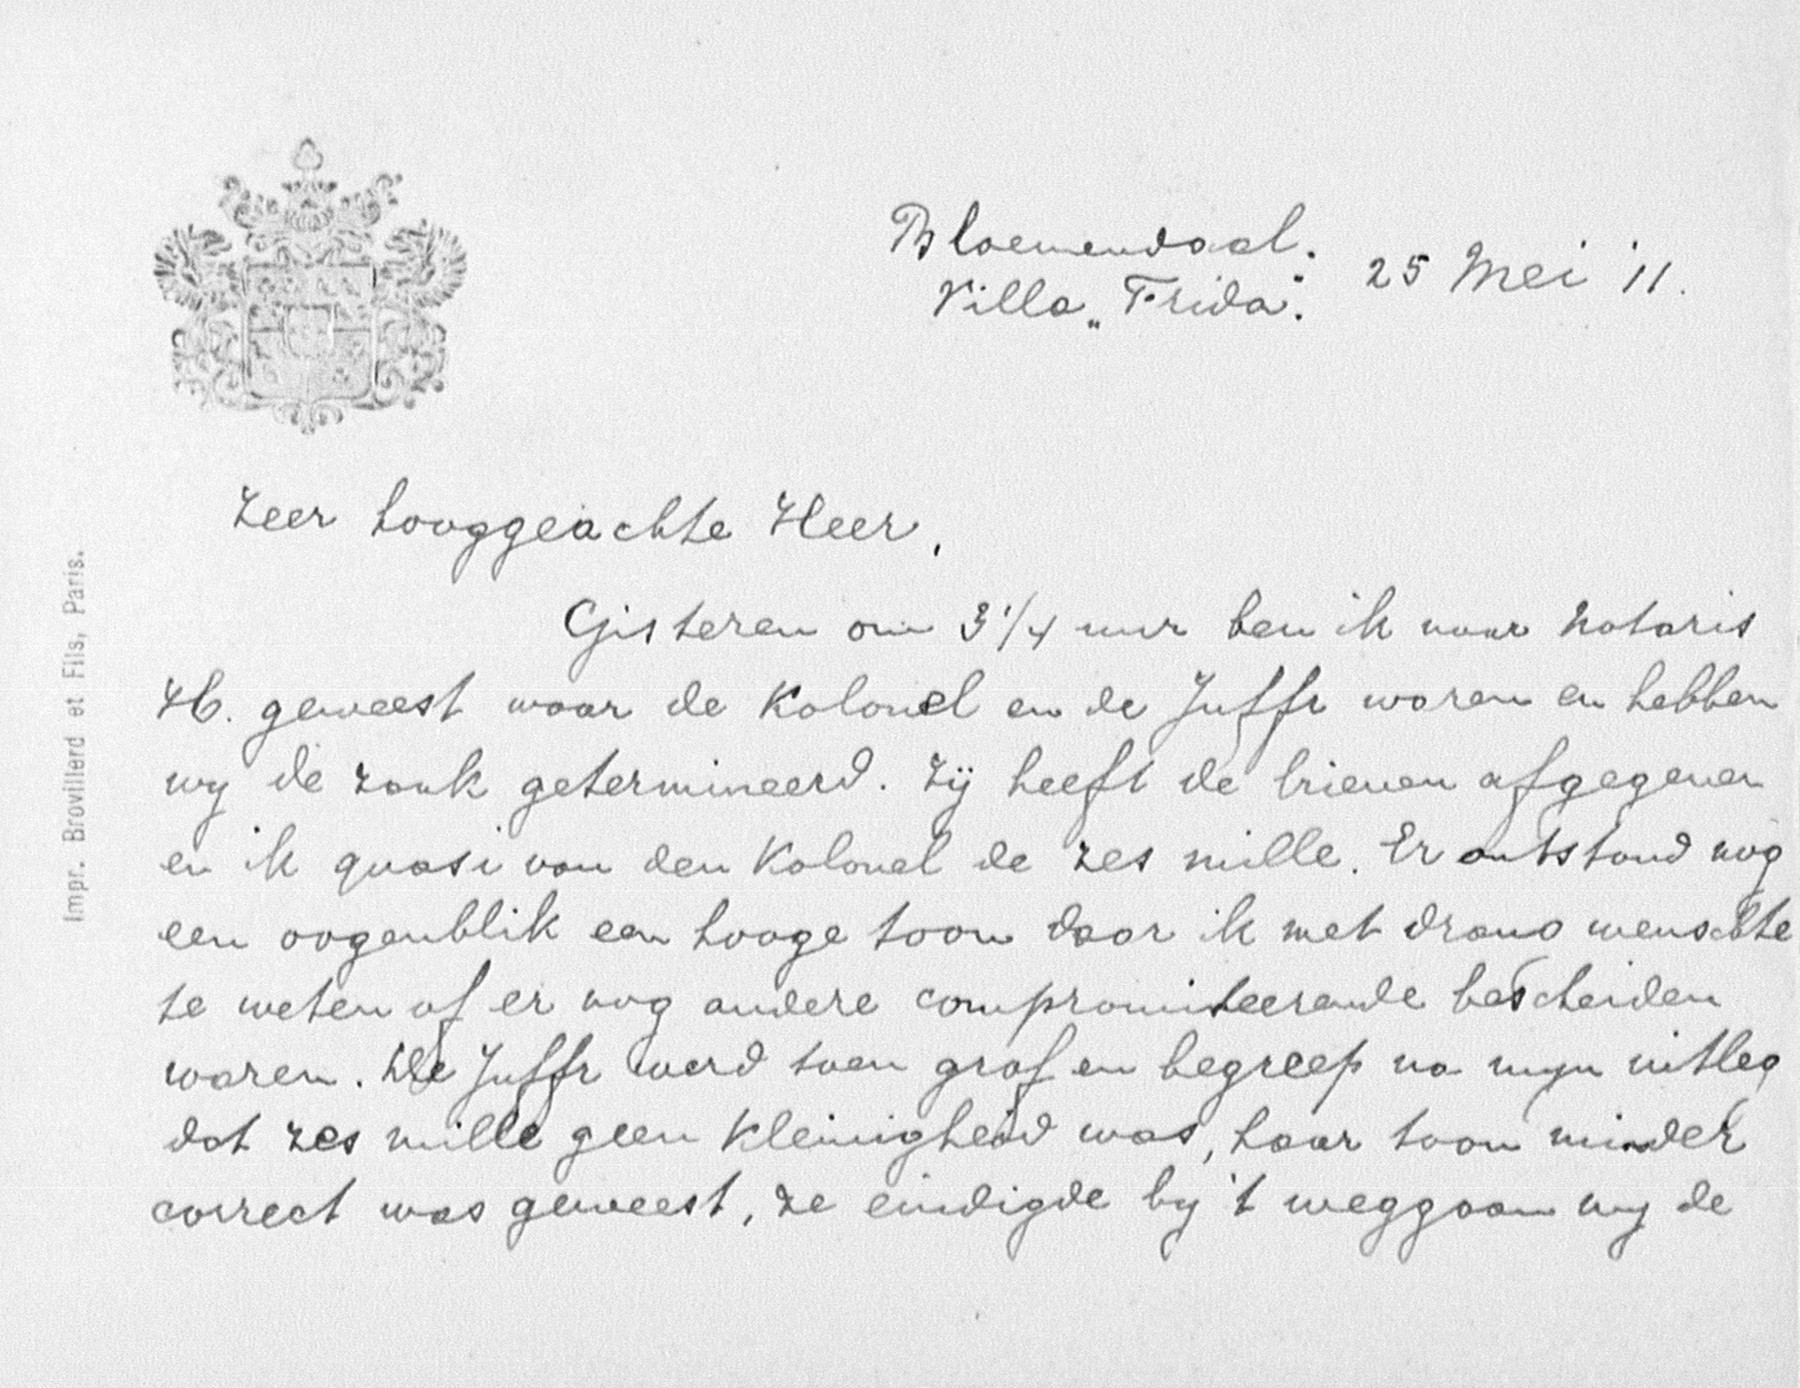 Bloemendaal. 25 Mei '11.
Villa „Frida".
Zeer hooggeachte Heer,
Gisteren om 3 1/4 uur ben ik naar Notaris
H. geweest waar de Kolonel en de Juffr waren en hebben
wy de zaak getermineerd. Zij heeft de brieven afgegeven
en ik quasi van den Kolonel de zes mille. Er ontstond nog
een oogenblik een hooge toon daar ik met drang wenschte
te weten of er nog andere compromiteerende bescheiden
waren. De Juffr werd toen grof en begreep na myn uitleg
dat zes mille geen kleinigheid was, haar toon minder
correct was geweest, ze eindigde by 't weggaan my de
Impr. Brovillerd et Fils, Paris.